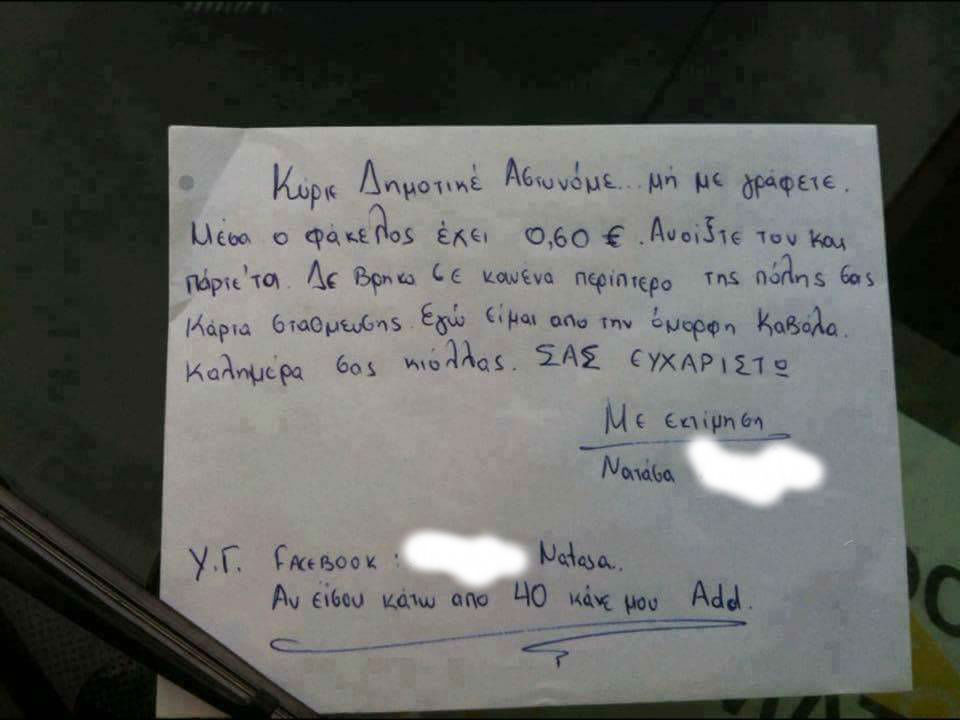 Κύριε Δημοτικέ Αστυνόμε... μή με γράφετε.
Μέσα ο φάκελος έχει 0,60 €. Ανοίξτε τον και
πάρτε'τα. Δε βρήκα σε κανένα περίπτερο της πόλης σας
κάρτα στάθμευσης. Εγώ είμαι απο την όμορφη Καβάλα.
Καλημέρα σας κιόλλας. ΣΑΣ ΕΥΧΑΡΙΣΤΩ
Με εκτίμηση
Νατάσα
Υ.Γ. FACEBOOK : Natasa..
Αν είσου κάτω απο 40 κάνε μου Add.